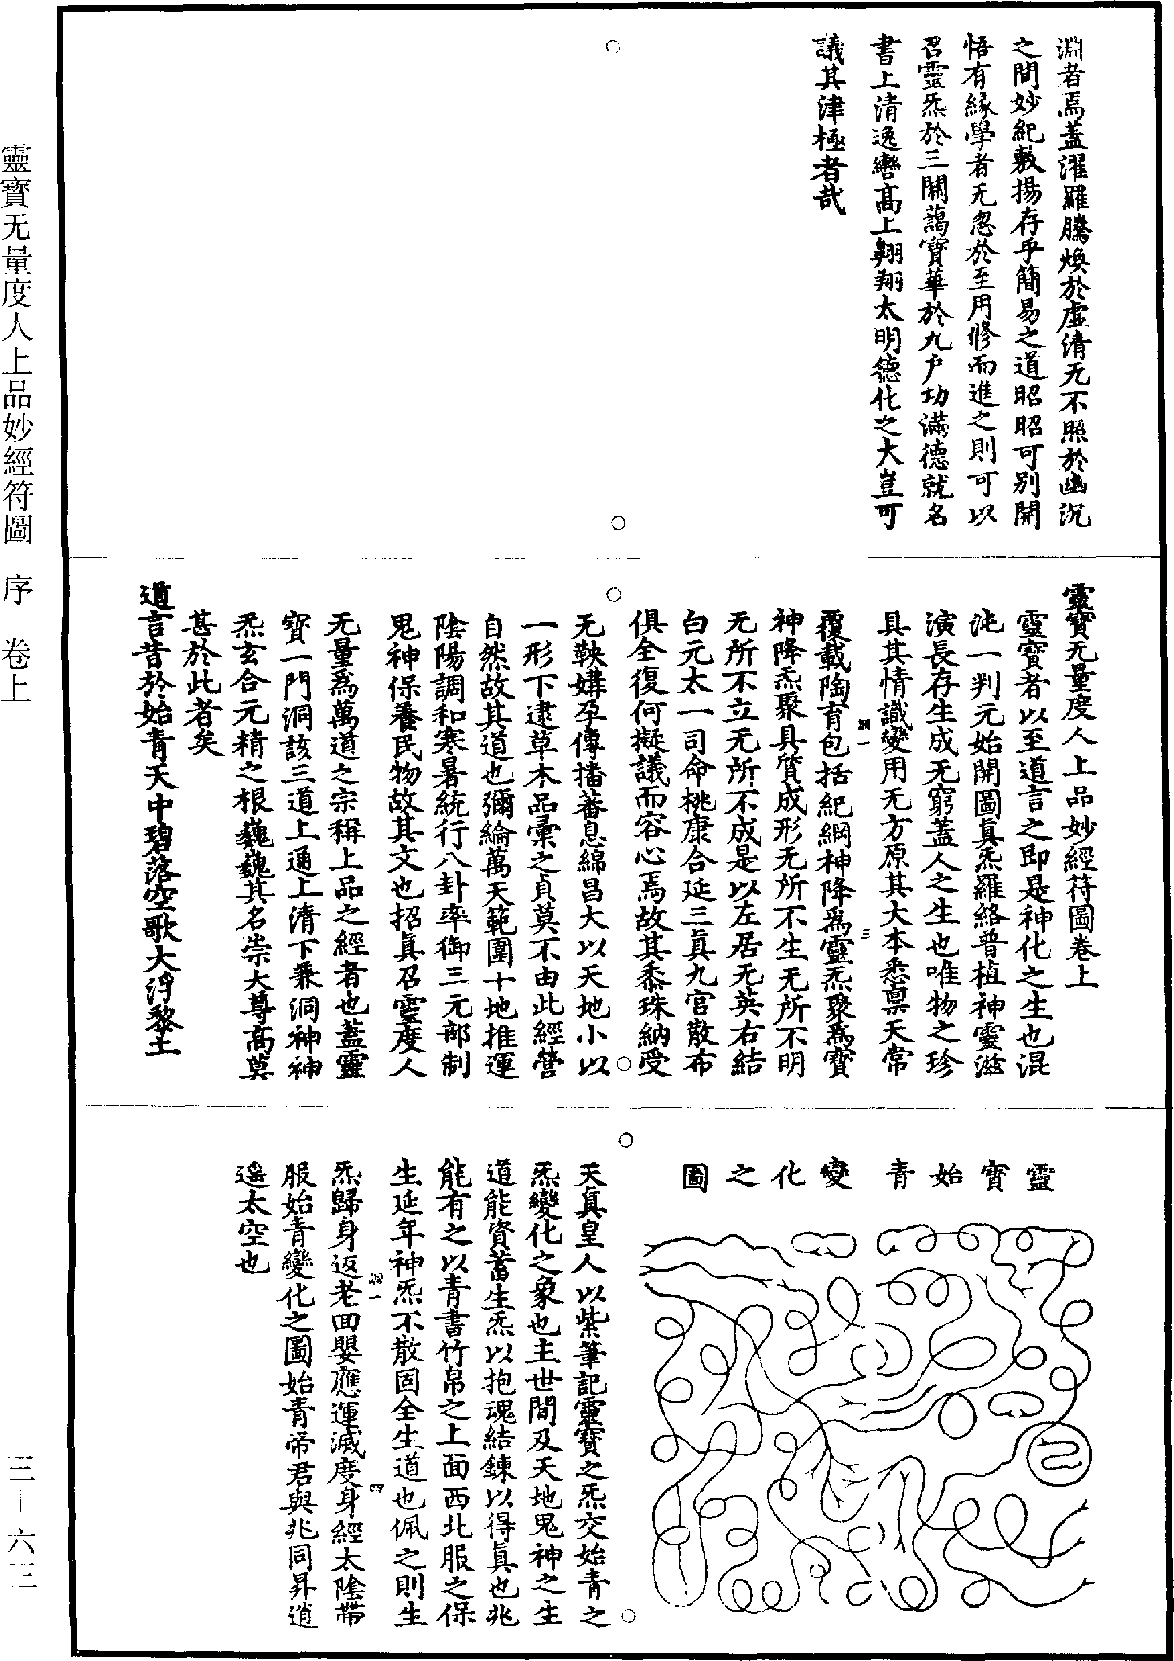 淵者焉蓋濯羅騰煥於虛清无不照於幽沉
之間妙紀敷揚存乎簡易之道昭昭可別開
悟有緣學者无忽於至用修而進之則可以
召靈炁於三關藹寶華於九戶功滿德就名
書上清逸轡高上翱翔太明德化之大豈可
議其津極者哉
靈寶无量度人上品妙經符圖卷上
靈寶者以至道言之即是神化之生也混
沌一判元始開圖真炁羅絡普植神靈滋
演長存生成无窮蓋人之生也唯物之珍
具其情識變用无方原其大本悉稟天常
覆載陶育包括紀綱神降為靈炁聚為寶
神降炁聚具質成形无所不生无所不明
无所不立无所不成是以左居无英右結
白元太一司命桃康合延三真九宮散布
俱全復何擬議而容心焉故其黍珠納受
无鞅媾孕傳播蕃息綿昌大以天地小以
一形下逮草木品彙之貞莫不由此經營
自然故其道也彌綸萬天範圍十地推運
陰陽調和寒暑統行八卦率御三元部制
鬼神保養民物故其文也招真召靈度人
无量為萬道之宗稱上品之經者也蓋靈
寶一門洞該三道上通上清下兼洞神神
炁玄合元精之根巍巍其名崇大尊高莫
甚於此者矣
道言昔於始青天中碧落空歌大浮黎土
靈寶始青變化之圖
天真皇人以紫筆記靈寶之炁交始青之
炁變化之象也主世間及天地鬼神之生
道能資蓄生炁以抱魂結鍊以得真也兆
能有之以青書竹帛之上面西北服之保
生延年神炁不散固全生道也佩之則生
炁歸身返老回嬰應運滅度身經太陰帶
服始青變化之圖始青帝君與兆同昇逍
遙太空也
靈寶无量度人上品妙經符圖 序 卷上
三—六三